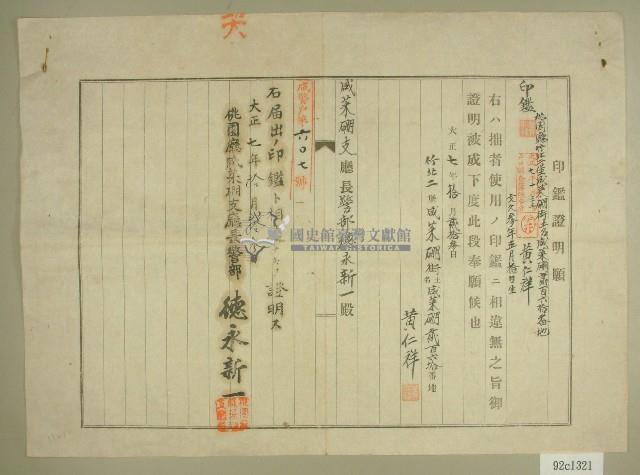 印鑑證明願
印鑑
黃仁祥
右ハ拙者使用ノ印鑑ニ相違無之旨御
證明被成下度此段奉願候也
大正七年拾月貳拾參日
竹北二堡咸菜硼街土名咸菜硼貳百六拾番地
黃仁祥
咸菜硼支廳長警部德永新一殿
六〇七號
右届出ノ印鑑ト相違
證明ス
大正七年拾月
桃園廳咸菜硼支廳長警部
德永新一
國史館臺灣文獻館
TAIWAN HISTORICA
92c1321